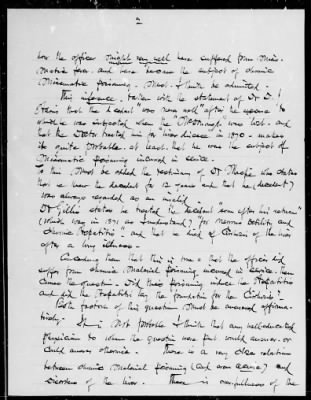 2
how the officer might very well have suffered from mias-
matic fever and have become the subject of chronic
Miasmatic poisoning. Must I think be admitted.
This inference, taken with the statement of Dr
that the decedent "was never well" after the
which he was subjected when the was lost - and
that the Doctor treated him for liver disease in 1870 - makes
it quite probable at least, that he was the subject of
Miasmatic poisoning incurred in service.
To this must be added the testimony of Dr who states
that he knew the decedent for 12 years and that he (decedent)
was always regarded as an invalid.
Dr Gillis states he treated the decedent "soon after his return"
(which was in 1871 as for "nervous debility and
chronic Hepatitis" and that he died of Cirrhosis of the liver
after a long illness.
Conceding then that this is true - that the officer did
suffer from chronic Malarial poisoning incurred in service, then
comes the question - Did this poisoning induce the Hepatitis
and did the Hepatitis lay the foundation for the Cirrhosis?
Both factors of this question must be answered affirma-
tively. It is not probable I think that any well-educated
Physician to whom the question were put would answer - or
could answer otherwise. There is a very close relation
between chronic Malarial poisoning (and even acute) and
disorders of the liver. There is engorgement of the